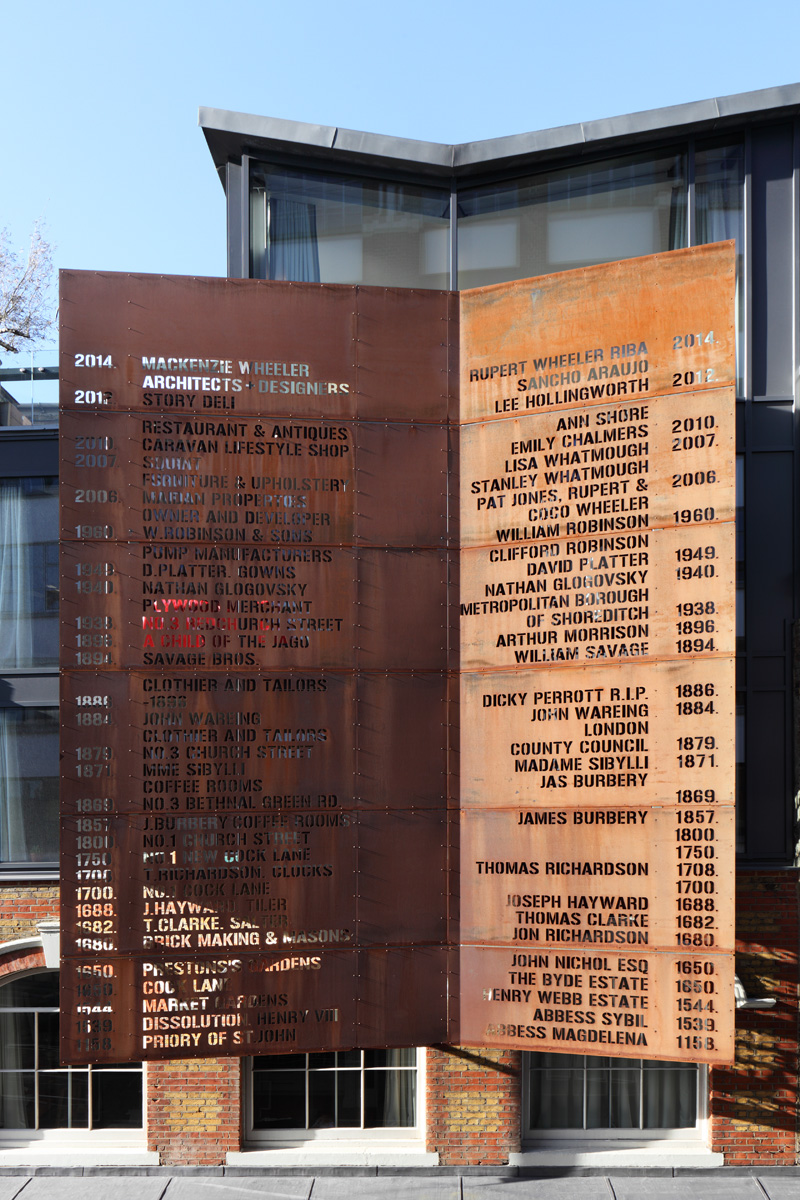 2014. MACKENZIE WHEELER
ARCHITECTS + DESIGNERS
2012 STORY DELI
RESTAURANT & ANTIQUES
2010. CARAVAN LIFESTYLE SHOP
2007.
FURNITURE & UPHOLSTERY
2006. MARIAN PROPERTIES
OWNER AND DEVELOPER
1960. W.ROBINSON & SONS
PUMP MANUFACTURERS
1949. D.PLATTER. GOWNS
1940. NATHAN GLOGOVSKY
PLYWOOD MERCHANT
1938. NO.3 REDCHURCH STREET
1896. A CHILD OF THE JAGO
1894. SAVAGE BROS.
CLOTHIER AND TAILORS
1886
1884. JOHN WAREING
CLOTHIER AND TAILORS
1879. NO.3 CHURCH STREET
1871. MME SIBYLLI
COFFEE ROOMS
1869. NO.3 BETHNAL GREEN RD.
1857. J.BURBERY COFFEE ROOMS
1800. NO.1 CHURCH STREET
1750. NO.1 NEW COCK LANE
1700 T.RICHARDSON. CLOCKS
1700. COCK LANE
1688. J.HAYWARD. TILER
1682. T.CLARKE. SALTER
1680. BRICK MAKING & MASONS
1650. PRESTONS'S GARDENS
1650. COCK LANE
1544. MARKET GARDENS
1539. DISSOLUTION. HENRY VIII
1158. PRIORY OF ST.JOHN
RUPERT WHEELER RIBA 2014.
SANCHO ARAUJO
LEE HOLLINGWORTH 2012.
ANN SHORE
EMILY CHALMERS 2010.
LISA WHATMOUGH 2007.
STANLEY WHATMOUGH
PAT JONES, RUPERT & 2006.
COCO WHEELER
WILLIAM ROBINSON 1960.
CLIFFORD ROBINSON
DAVID PLATTER 1949.
NATHAN GLOGOVSKY 1940.
METROPOLITAN BOROUGH
OF SHOREDITCH 1938.
ARTHUR MORRISON 1896.
WILLIAM SAVAGE 1894.
DICKY PERROTT R.I.P. 1886.
JOHN WAREING 1884.
LONDON
COUNTY COUNCIL 1879.
MADAME SIBYLLI 1871.
JAS BURBERY
1869.
JAMES BURBERY 1857.
1800.
1750.
THOMAS RICHARDSON 1708.
1700.
JOSEPH HAYWARD 1688.
THOMAS CLARKE 1682.
JON RICHARDSON 1680
JOHN NICHOL ESQ 1650.
THE BYDE ESTATE 1650.
HENRY WEBB ESTATE 1544.
ABBESS SYBIL 1539.
ABBESS MAGDELENA 1158.